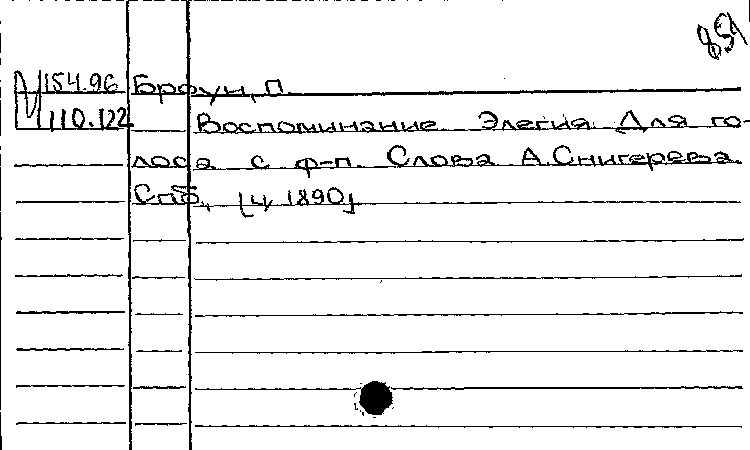 859
М 154.96 Броун, П.
М 110.122 Воспоминание. Элегия. Для го-
лоса с ф-п. Слова А. Снигерева.
Спб., [ц. 1890]